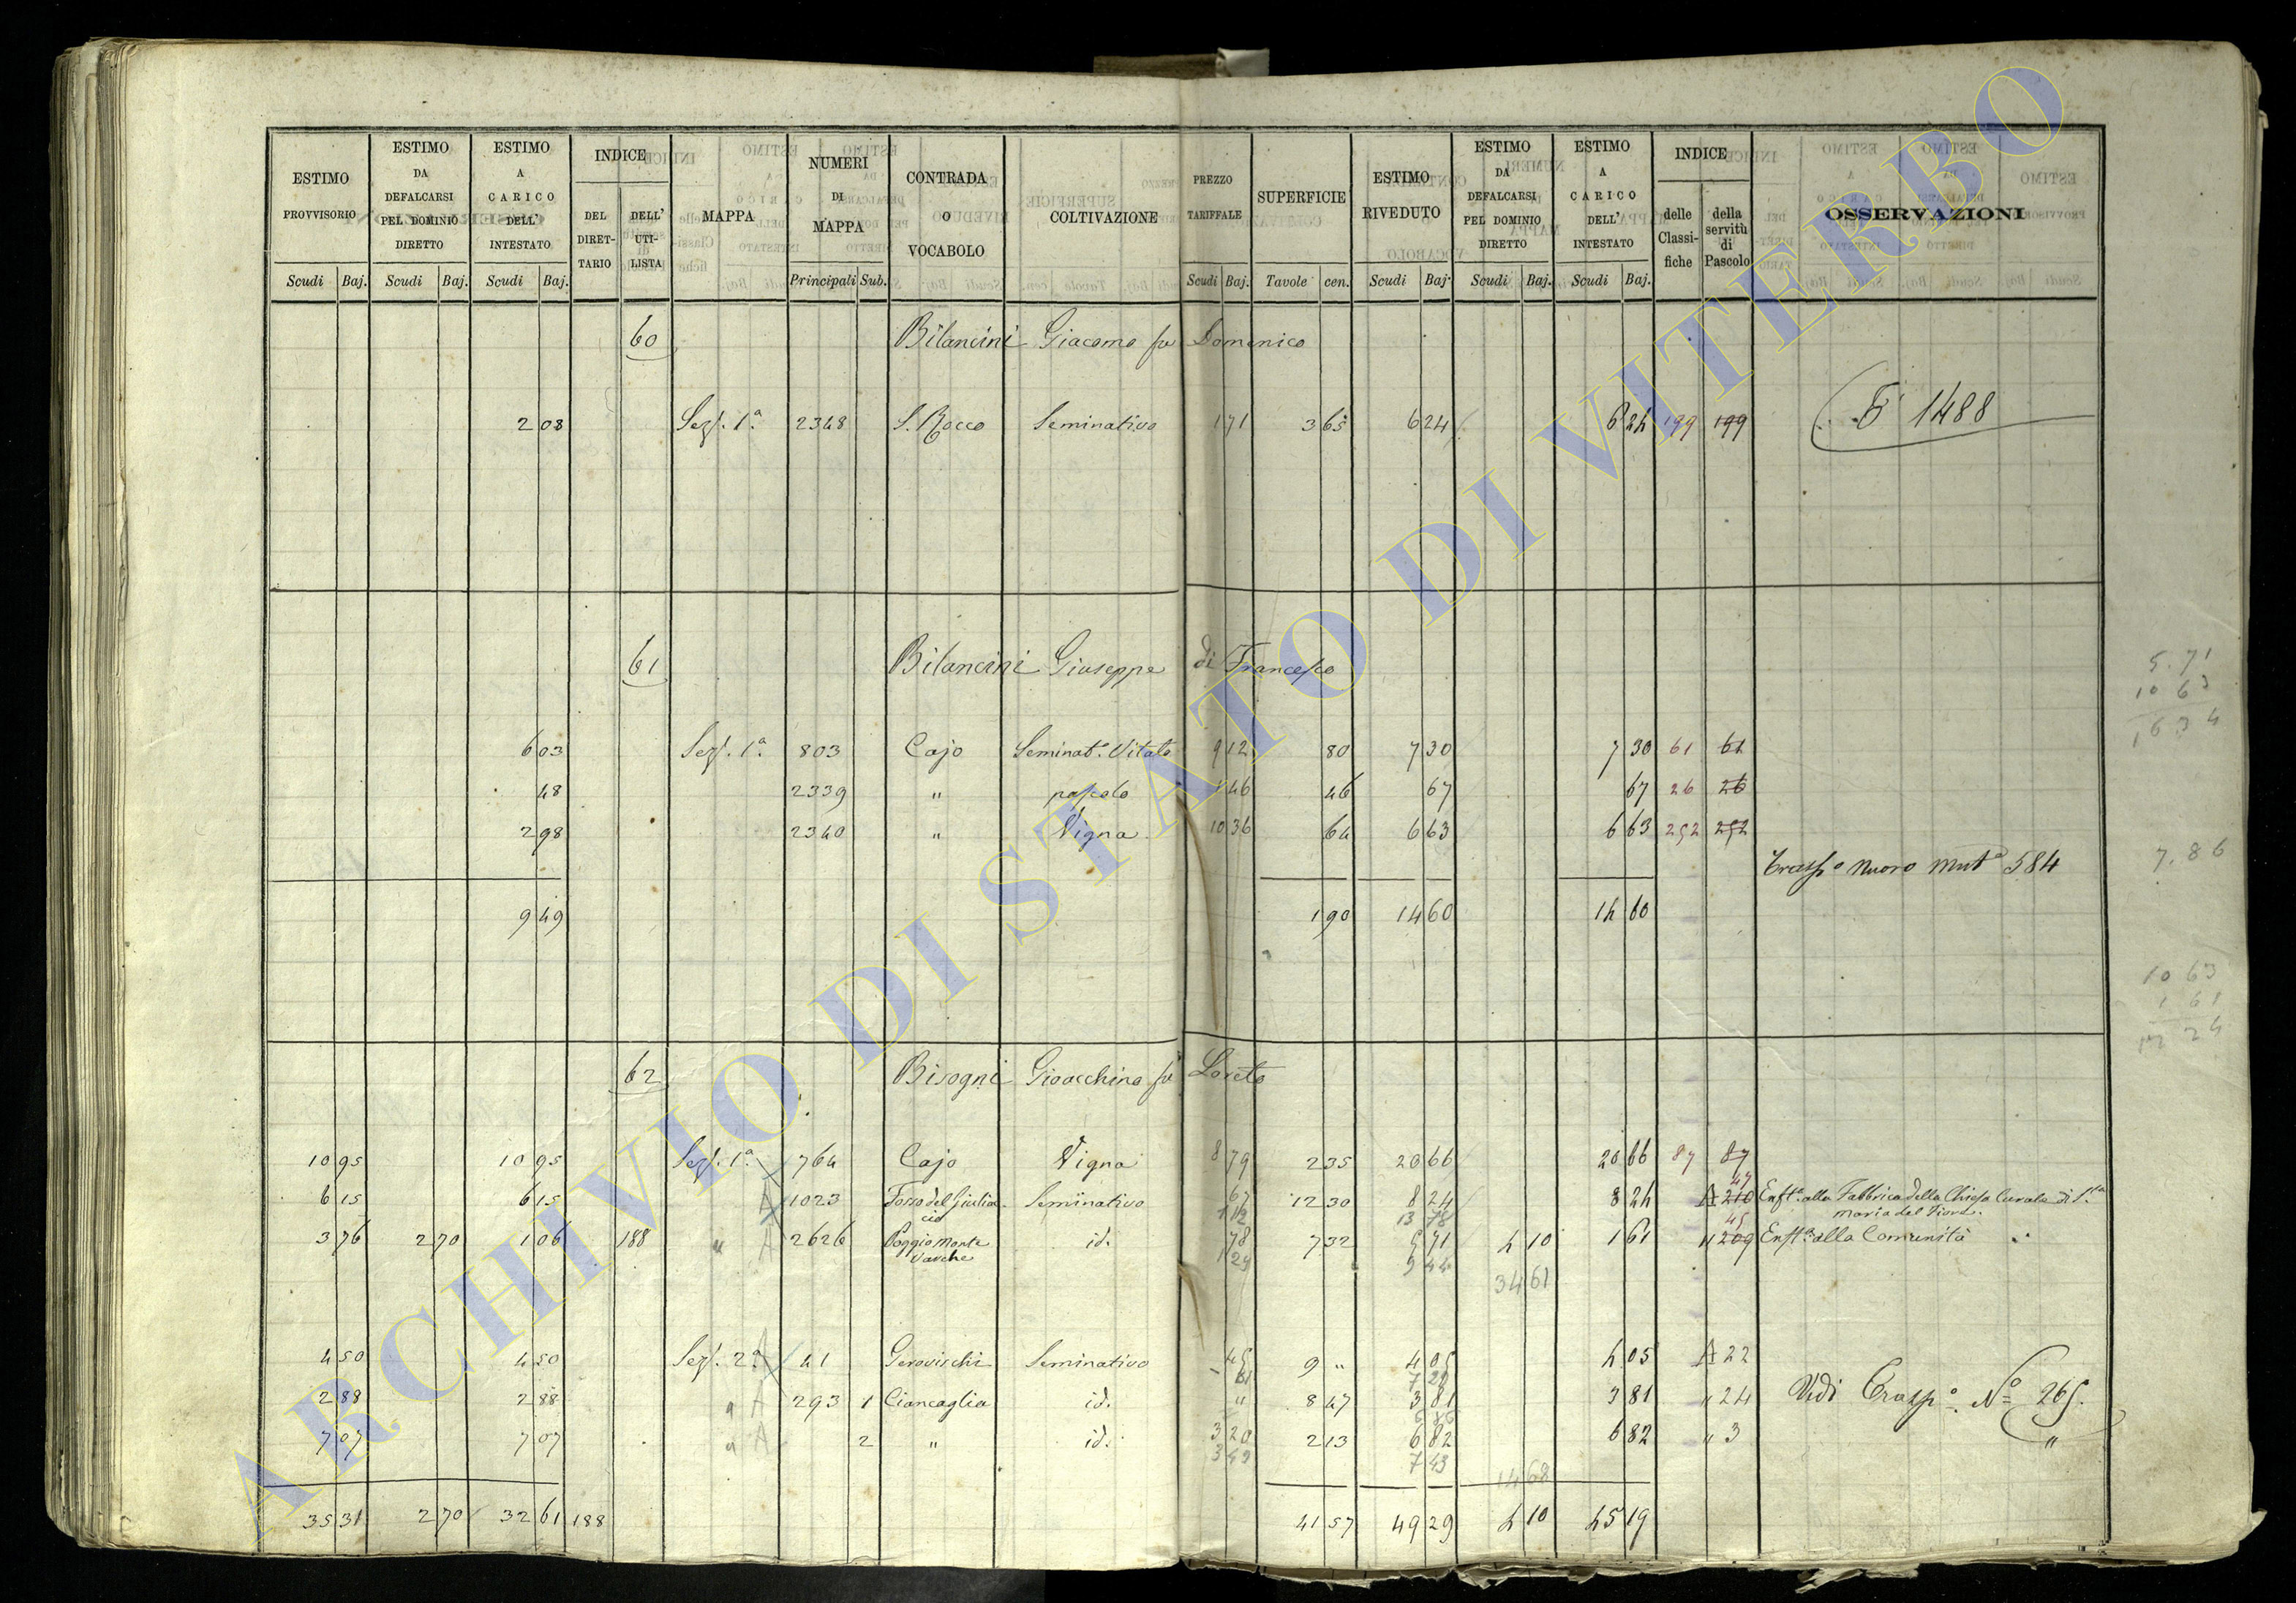 ESTIMO PROVVISORIO
ESTIMO DA DEFALCARSI PEL DOMINIO DIRETTO
ESTIMO A CARICO DELL' INTESTATO
INDICE
DEL DIRET-TARIO
DELL' UTI-LISTA
MAPPA
NUMERI DI MAPPA
CONTRADA O VOCABOLO
COLTIVAZIONE
PREZZO TARIFFALE
SUPERFICIE
ESTIMO RIVEDUTO
ESTIMO DA DEFALCARSI PEL DOMINIO DIRETTO
ESTIMO A CARICO DELL' INTESTATO
INDICE
delle Classi-fiche
della servitù di Pascolo
OSSERVAZIONI
Scudi Baj. Scudi Baj. Scudi Baj. Principali Sub. Scudi Baj. Tavole cen. Scudi Baj. Scudi Baj. Scudi Baj.
60 Bilancini Giacomo fu Domenico
2 08 Sez. 1ª 2348 S. Rocco Seminativo 1 71 3 65 6 24 6 24 199 199 1488
61 Bilancini Giuseppe di Francesco
6 03 Sez. 1ª 803 Cajo Seminat.º Vitato 9 12 80 7 30 7 30 61 61
48 2339 " pascolo 1 46 46 67 67 26 26
2 98 2340 " Vigna 10 36 64 6 63 6 63 252 252
Trasp.º nuovo Mut.º 584
9 49 1 90 14 60 14 60
5.71
10 63
16 34
7.86
10 63
1 61
12 24
62 Bisogni Gioacchino fu Loreto
10 95 10 95 Sez. 1ª 764 Cajo Vigna 8 79 2 35 20 66 20 66 87 87
6 15 6 15 A 1023 Fosso del Giulia cio Seminativo 67 12 30 8 24 8 24 A 210 Enft.ª alla Fabbrica della Chiesa Curata di S.ta Maria del Fiore.
1 12 13 78
3 76 2 70 1 06 188 " A 2626 Poggio Monte Vacche id. 78 7 32 5 71 4 10 1 61 " 209 Enft.ª alla Comunità
1 29 9 44
34 61
4 50 4 50 Sez. 2ª A 41 Gerovischi Seminativo 45 9 " 4 05 4 05 A 22
81 7 29
2 88 2 88 " A 293 1 Ciancaglia id. " 8 47 3 81 3 81 " 24 Vedi Trasp.º Nº 265.
6 86
7 07 7 07 " A 2 " id. 3 20 2 13 6 82 6 82 " 3 "
3 49 7 43
14 68
35 31 2 70 32 61 188 41 57 49 29 4 10 45 19
ARCHIVIO DI STATO DI VITERBO